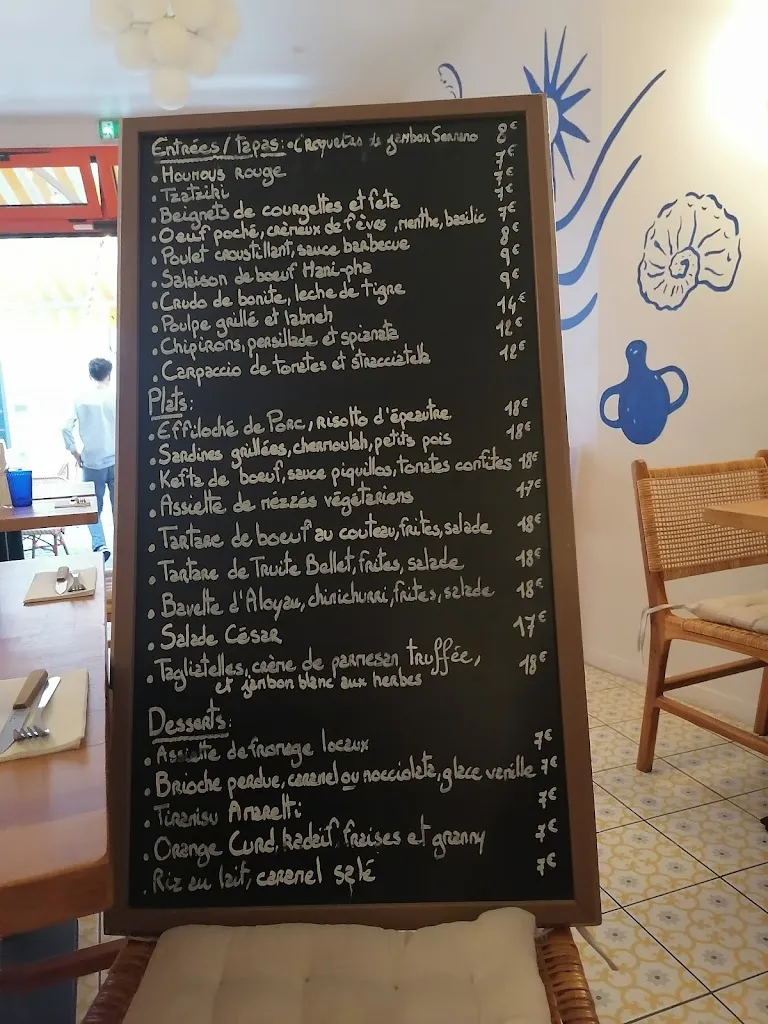 Entrées / Tapas: • Croquetas de jambon Serrano 8€
• Houmous Rouge 7€
• Tzatziki 7€
• Beignets de courgettes et feta 7€
• Oeuf poché, crémeux de fèves, menthe, basilic 7€
• Poulet croustillant, sauce barbecue 8€
• Salaison de boeuf Hani-pha 9€
• Crudo de bonite, leche de tigre 9€
• Poulpe grillé et labneh 14€
• Chipirons, persillade et spianata 12€
• Carpaccio de tomates et stracciatella 12€
Plats:
• Effiloché de Porc, risotto d'épeautre 18€
• Sardines grillées, chermoulah, petits pois 18€
• Kefta de boeuf, sauce piquillos, tomates confites 18€
• Assiette de mézzés végétariens 17€
• Tartare de boeuf au couteau, frites, salade 18€
• Tartare de Truite Bellet, frites, salade 18€
• Bavette d'Aloyau, chimichurri, frites, salade 18€
• Salade César 17€
• Tagliatelles, crème de parmesan truffée, 18€
et jambon blanc aux herbes
Desserts:
• Assiette de fromage locaux 7€
• Brioche perdue, caramel ou nocciolata, glace vanille 7€
• Tiramisu Amaretti 7€
• Orange Curd, kadaïf, fraises et granny 7€
• Riz au lait, caramel salé 7€